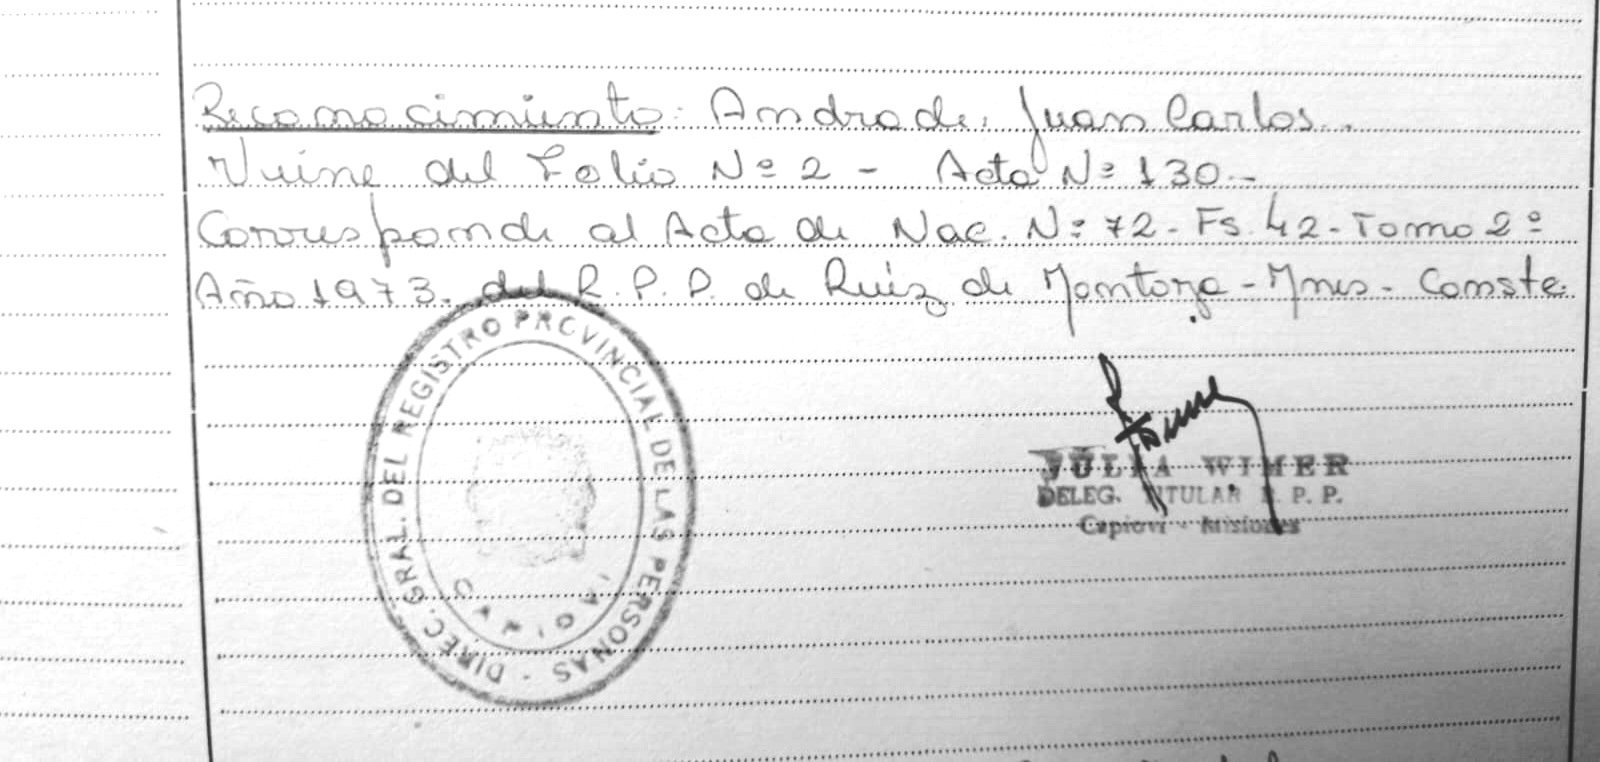 Reconocimiento: Andrade, Juan Carlos.
Viene del Folio Nº 2 - Acta Nº 130.-
Corresponde al Acta de Nac. Nº 72 - Fs. 42 - Tomo 2º
Año 1973. del R. P. P. de Ruiz de Montoya - Mnes - Conste.
DIREC. GRAL. DEL REGISTRO PROVINCIAL DE LAS PERSONAS -
CAPIOVI
JULIA WIMER
DELEG. TITULAR R. P. P.
Capiovi - Misiones